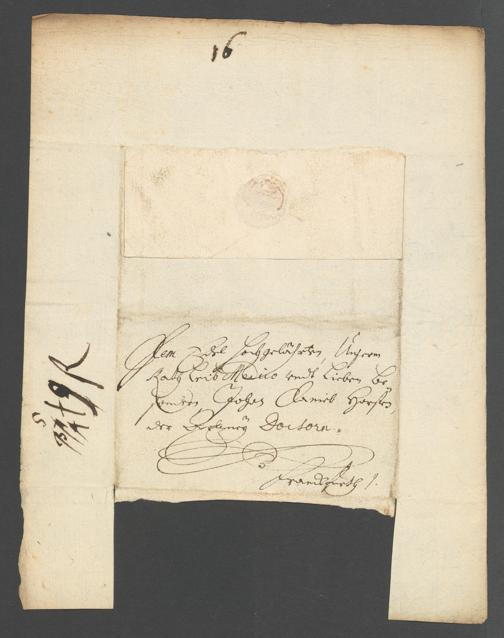 16
Dem Edel Hochgelährten, Unserm
Rath, Leib Medico undt Lieben Be
sondern Johan Daniel Horsten,
der Artzney Doctorn.
Franckfurth